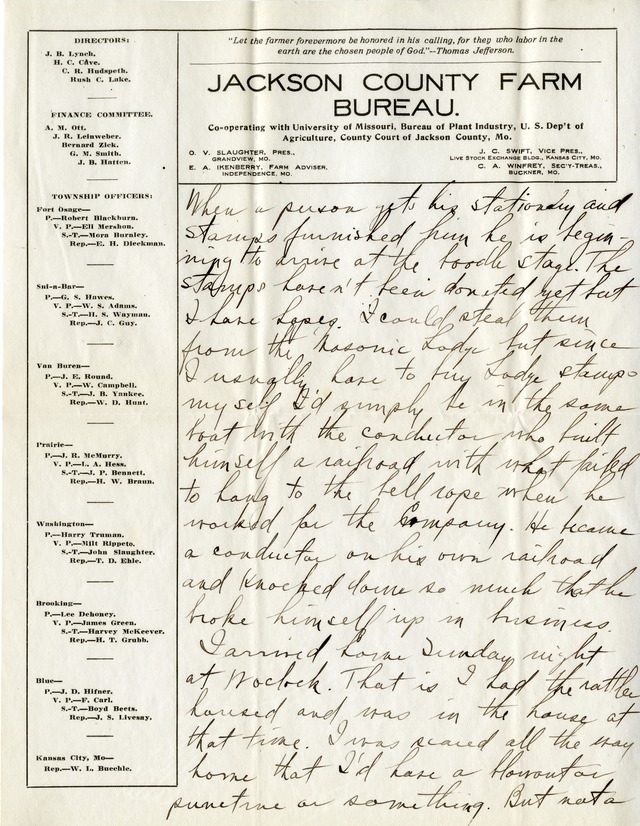 DIRECTORS:
J. B. Lynch.
H. C. Cave.
C. R. Hudspeth.
Rush C. Lake.
FINANCE COMMITTEE.
A. M. Ott.
J. R. Leinweber.
Bernard Zick.
G. M. Smith.
J. B. Hatten.
TOWNSHIP OFFICERS:
Fort Osage—
P.—Robert Blackburn.
V. P.—Eli Mershon.
S.-T.—Mora Burnley.
Rep.—E. H. Dieckman.
Sni-a-Bar—
P.—G. S. Hawes.
V. P.—W. S. Adams.
S.-T.—H. S. Wayman.
Rep.—J. C. Guy.
Van Buren—
P.—J. E. Round.
V. P.—W. Campbell.
S.-T.—J. B. Yankee.
Rep.—W. D. Hunt.
Prairie—
P.—J. R. McMurry.
V. P.—L. A. Hess.
S.-T.—J. P. Bennett.
Rep.—H. W. Braun.
Washington—
P.—Harry Truman.
V. P.—Milt Rippeto.
S.-T.—John Slaughter.
Rep.—T. D. Ehle.
Brooking—
P.—Lee Dehoney.
V. P.—James Green.
S.-T.—Harvey McKeever.
Rep.—H. T. Grubb.
Blue—
P.—J. D. Hifner.
V. P.—F. Carl.
S.-T.—Boyd Beets.
Rep.—J. S. Livesay.
Kansas City, Mo—
Rep.—W. L. Buechle.
"Let the farmer forevermore be honored in his calling, for they who labor in the
earth are the chosen people of God."--Thomas Jefferson.
JACKSON COUNTY FARM
BUREAU.
Co-operating with University of Missouri, Bureau of Plant Industry, U. S. Dep't of
Agriculture, County Court of Jackson County, Mo.
O. V. SLAUGHTER, PRES.,
GRANDVIEW, MO.
E. A. IKENBERRY, FARM ADVISER,
INDEPENDENCE, MO.
J. C. SWIFT, VICE PRES.,
LIVE STOCK EXCHANGE BLDG., KANSAS CITY, MO.
C. A. WINFREY, SEC'Y-TREAS.,
BUCKNER, MO.
When a person gets his stationery and
stamps furnished him he is begin-
ning to arrive at the boodle stage. The
stamps haven't been donated yet but
I have hopes. I could steal them
from the Masonic Lodge but since
I usually have to buy Lodge stamps
myself I'd simply be in the same
boat with the conductor who built
himself a railroad with what failed
to hang to the bell rope when he
worked for the Company. He became
a conductor on his own railroad
and knocked down so much that he
broke himself up in business.
I arrived home Sunday night
at Woclock. That is I had the rattler
housed and was in the house at
that time. I was scared all the way
home that I'd have a blowout or
puncture or something. But not a